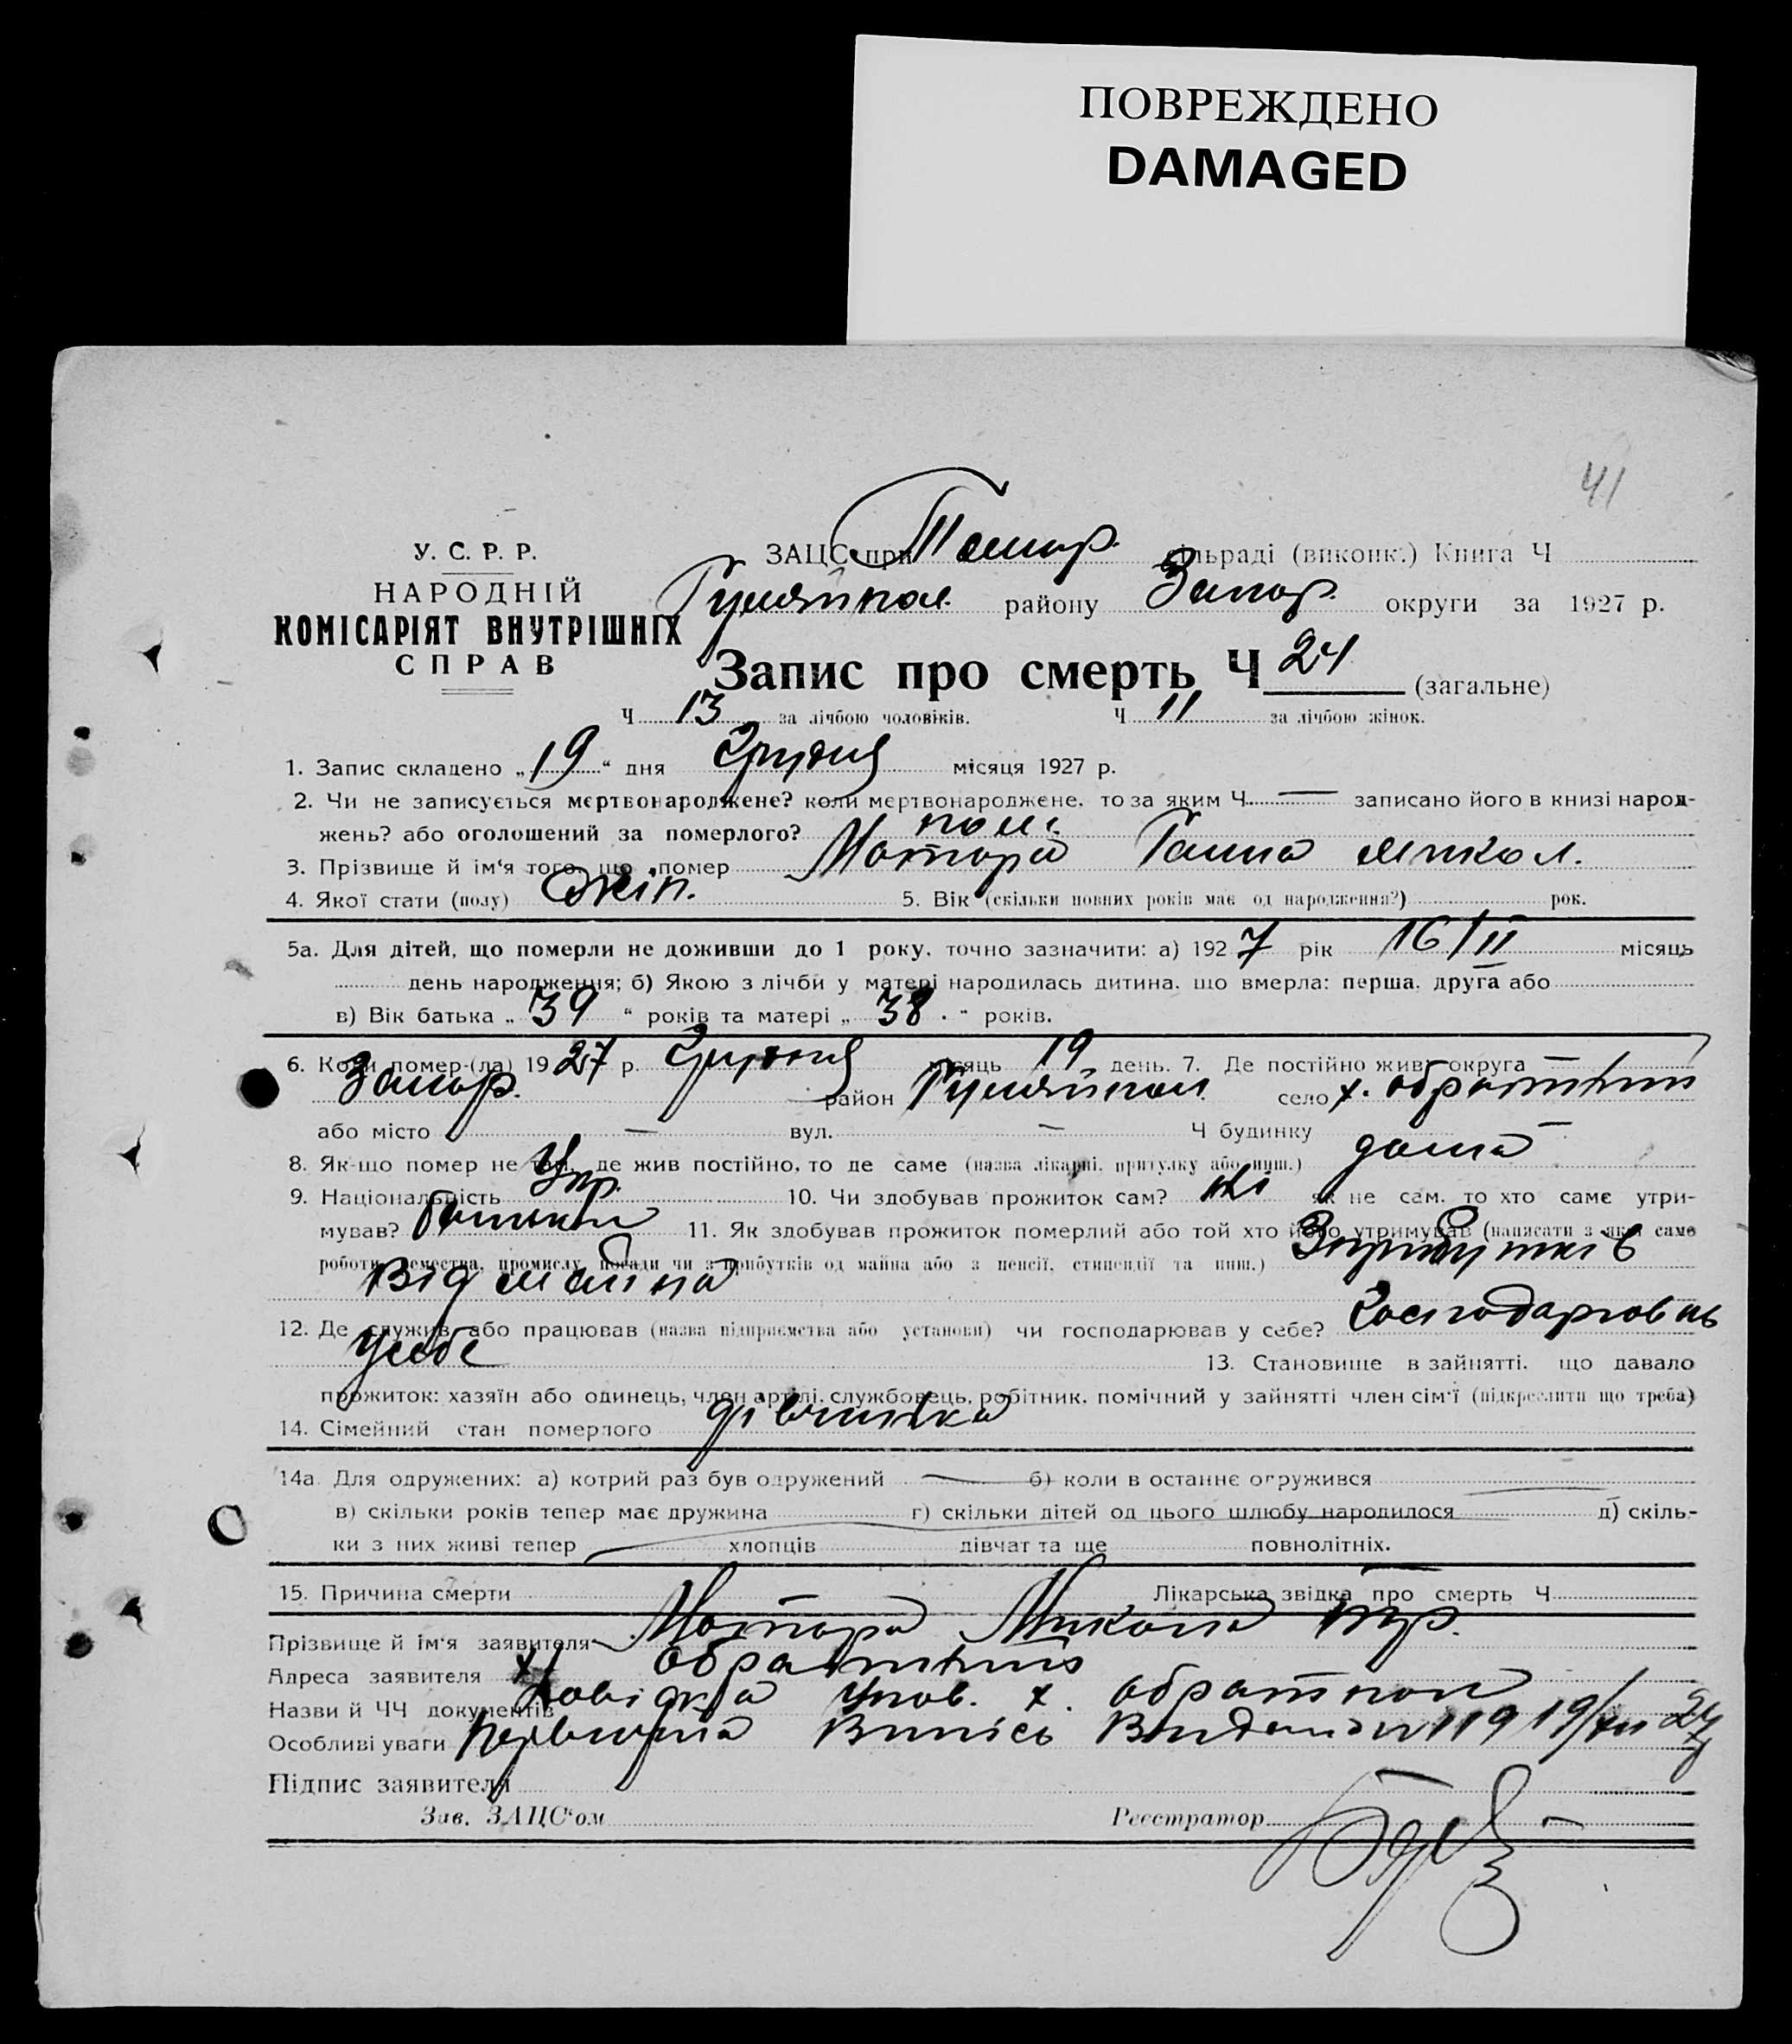 ПОВРЕЖДЕНО
DAMAGED
41
У. С. Р. Р.
НАРОДНІЙ
КОМІСАРІЯТ ВНУТРІШНІХ
СПРАВ
ЗАЦС при сільраді (виконк.) Книга Ч
Гуляйпол. району Запор. округи за 1927 р.
Запис про смерть Ч 24 (загальне)
Ч 13 за лічбою чоловіків. Ч 11 за лічбою жінок.
1. Запис складено „19“ дня Грудня місяця 1927 р.
2. Чи не записується мертвонароджене? коли мертвонароджене, то за яким Ч — записано його в книзі народ-
жень? або оголошений за померлого? пом.
3. Прізвище й ім‘я того, що помер Мотора Ганна Микол.
4. Якої стати (полу) жін. 5. Вік (скільки повних років має од народження?) рок.
5а. Для дітей, що померли не доживши до 1 року, точно зазначити: а) 1927 рік 16/II місяць
день народження; б) Якою з лічби у матері народилась дитина, що вмерла: перша, друга або
в) Вік батька „39“ років та матері „38.“ років.
6. Коли помер-(ла) 1927 р. Грудня місяць 19 день. 7. Де постійно жив: округа
Запор. район Гуляйпол село х.
або місто — вул. — Ч будинку —
8. Як-що помер не там, де жив постійно, то де саме (назва лікарні, притулку або инш.) дома
9. Національність Укр. 10. Чи здобував прожиток сам? ні як не сам, то хто саме утри-
мував? батьки 11. Як здобував прожиток померлий або той хто його утримував (написати з якої само
роботи, ремества, промислу, посади чи з прибутків од майна або з пенсії, стипендії та инш.) Зприбутків
від майна
12. Де служив або працював (назва підприємства або установи) чи господарював у себе? Господарював
у себе 13. Становище в зайнятті, що давало
прожиток: хазяїн або одинець, член артілі, службовець, робітник, помічний у зайнятті член сім‘ї (підкреслити що треба)
14. Сімейний стан померлого дівчинка
14а. Для одружених: а) котрий раз був одружений — б) коли в останнє одружився
в) скільки років тепер має дружина г) скільки дітей од цього шлюбу народилося д) скіль-
ки з них живі тепер хлопців дівчат та ще повнолітніх.
15. Причина смерти Лікарська звідка про смерть Ч —
Прізвище й ім‘я заявителя Мотора Микола
Адреса заявителя х.
Назви й ЧЧ документів Довідка упов. х.
Особливі уваги Первісна Випись Видана N 119 19/XII 27
Підпис заявителя
Зав. ЗАЦС‘ом Реєстратор